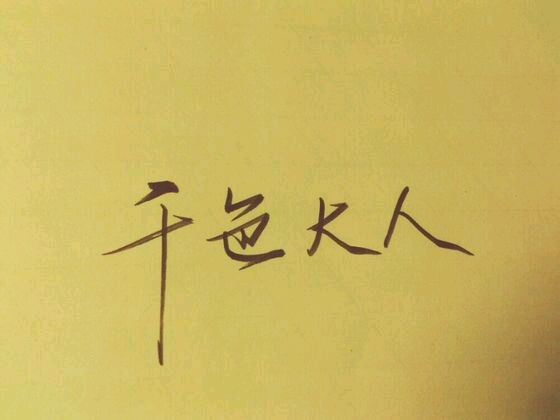 千色大人